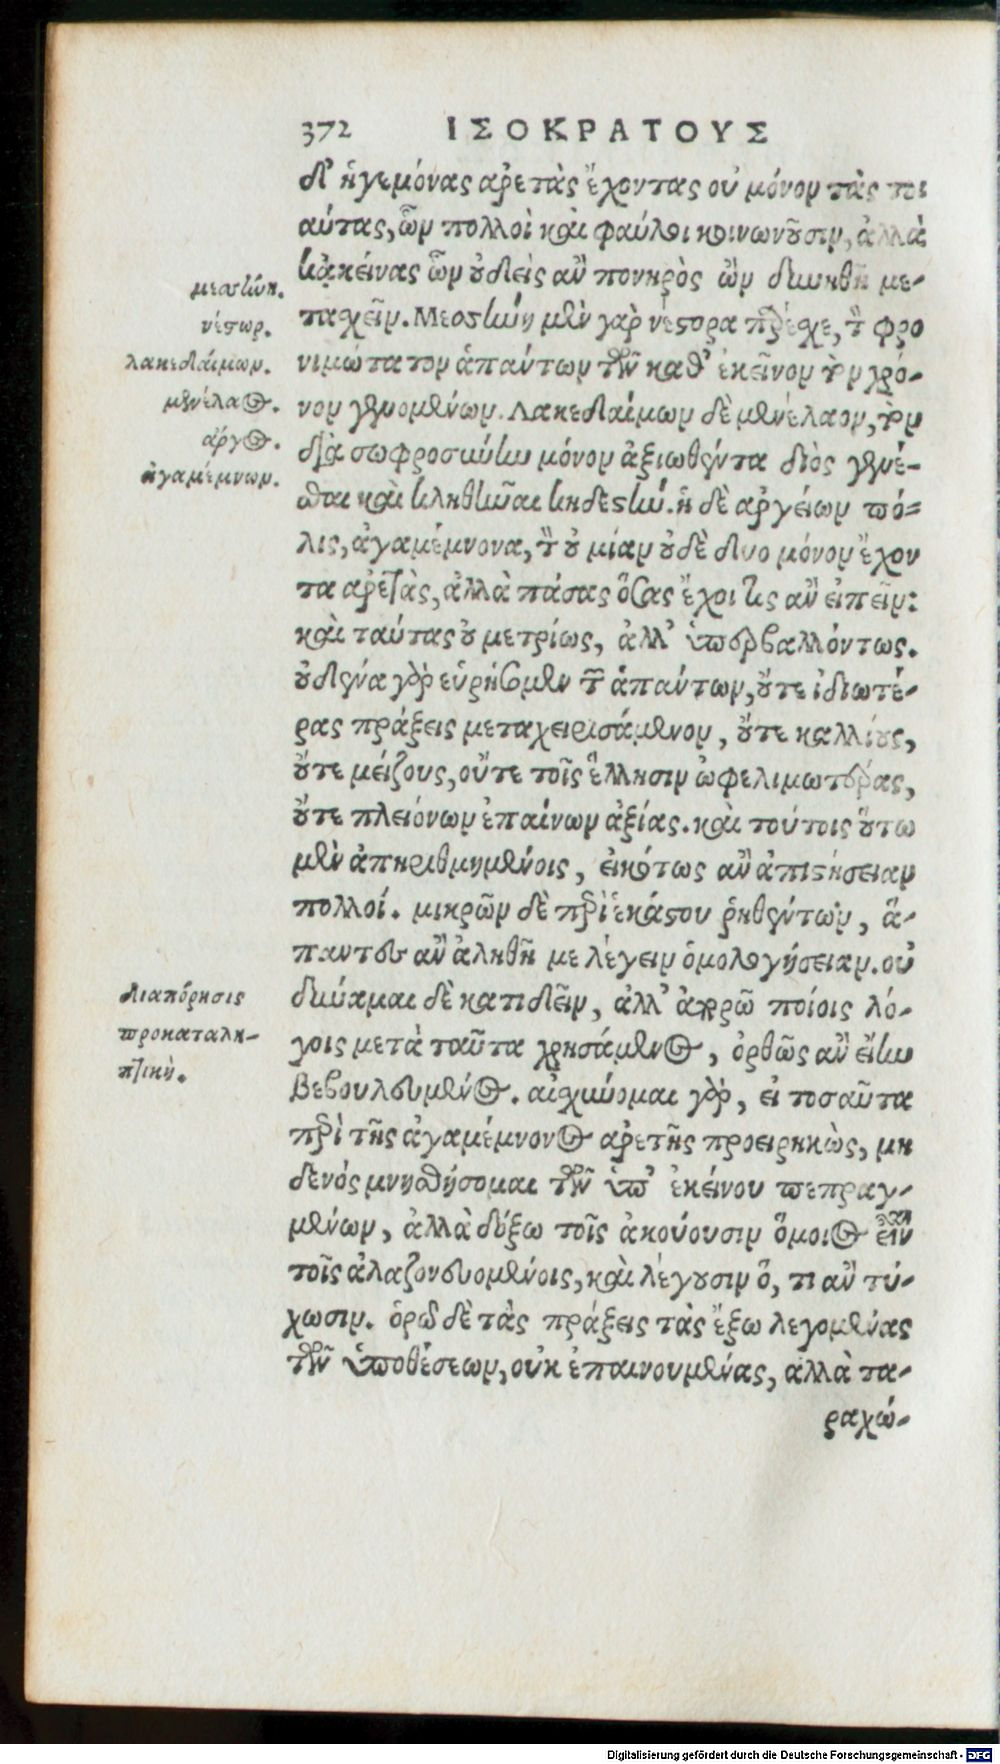 372 ΙΣΟΚΡΑΤΟΥΣ
δ' ἡγεμόνας ἀρετὰς ἔχοντας οὐ μόνον τὰς τοι
αύτας, ὧν πολλοὶ καὶ φαύλοι κοινωνοῦσιν, ἀλλὰ
κἀκείνας ὧν οὐδεὶς ἂν πονηρὸς ὢν δυνηθῆ με-
τασχεῖν. Μεσσήνη μὲν γὰρ νέστορα παρέσχε, τὸν φρο
νιμώτατον ἁπάντων τῶν καθ' ἐκεῖνον τὸν χρό-
νον γενομένων. Λακεδαίμων δὲ μενέλαον, τὸν
διὰ σωφροσύνην μόνον ἀξιωθέντα διὸς γενέ-
σθαι καὶ κληθῆναι κηδεστήν. ἡ δὲ ἀργείων πό-
λις, ἀγαμέμνονα, τὸν οὐ μίαν οὐδὲ δυο μόνον ἔχον
τα ἀρετὰς, ἀλλὰ πάσας ὅσας ἔχοι τις ἂν εἰπεῖν:
καὶ ταύτας οὐ μετρίως, ἀλλ' ὑπερβαλλόντως.
οὐδένα γὰρ εὑρήσομεν τῶν ἁπάντων, οὔτε ἰδιωτέ-
ρας πράξεις μεταχειρισάμενον, οὔτε καλλίους,
οὔτε μείζους, οὔτε τοῖς ἕλλησιν ὠφελιμωτέρας,
οὔτε πλειόνων ἐπαίνων ἀξίας. καὶ τούτοις οὕτω
μὲν ἀπηριθμημένοις, εἰκότως ἂν ἀπιστήσειαν
πολλοί. μικρῶν δὲ περὶ ἑκάστου ῥηθέντων, ἅ-
παντες ἂν ἀληθῆ με λέγειν ὁμολογήσειαν. οὐ
δύναμαι δὲ κατιδεῖν, ἀλλ' ἀπορῶ ποίοις λό-
γοις μετὰ ταῦτα χρησάμενος, ὀρθῶς ἂν εἴην
βεβουλευμένος. αἰσχύνομαι γὰρ, εἰ τοσαῦτα
περὶ τῆς ἀγαμέμνονος ἀρετῆς προειρηκὼς, μη
δενός μνησθήσομαι τῶν ὑπ' ἐκείνου πεπραγ-
μένων, ἀλλὰ δόξω τοῖς ἀκούουσιν ὅμοιος εἶναι
τοῖς ἀλαζονευομένοις, καὶ λέγουσιν ὅ, τι ἂν τύ-
χωσιν. ὁρῶ δὲ τὰς πράξεις τὰς ἔξω λεγομένας
τῶν ὑποθέσεων, οὐκ ἐπαινουμένας, ἀλλὰ τα-
ραχώ-
μεσσήνη.
νέστωρ.
λακεδαίμων.
μενέλαος.
ἄργος.
ἀγαμέμνων.
διαπόρησις
προκαταλη-
πτική.
Digitalisierung gefördert durch die Deutsche Forschungsgemeinschaft - DFG